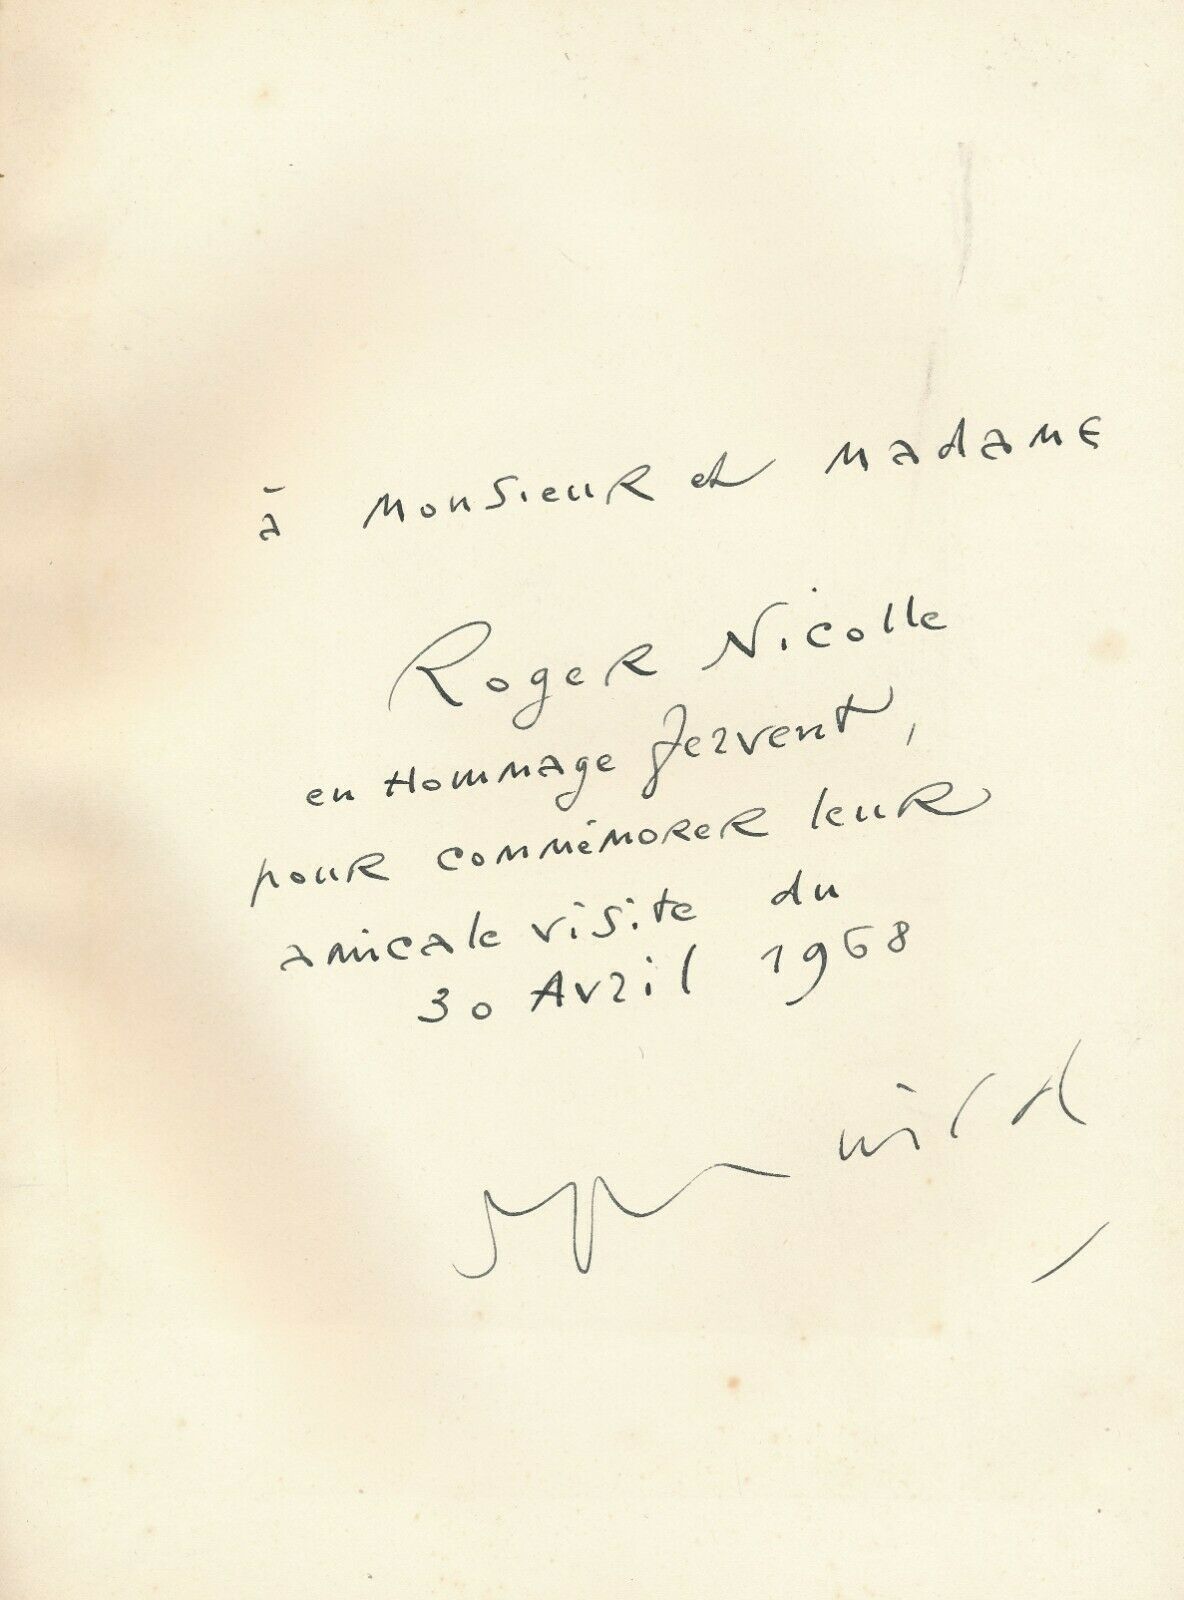 à Monsieur et Madame
Roger Nicolle
en Hommage fervent,
pour commémorer leur
amicale visite du
30 Avril 1968
Wild